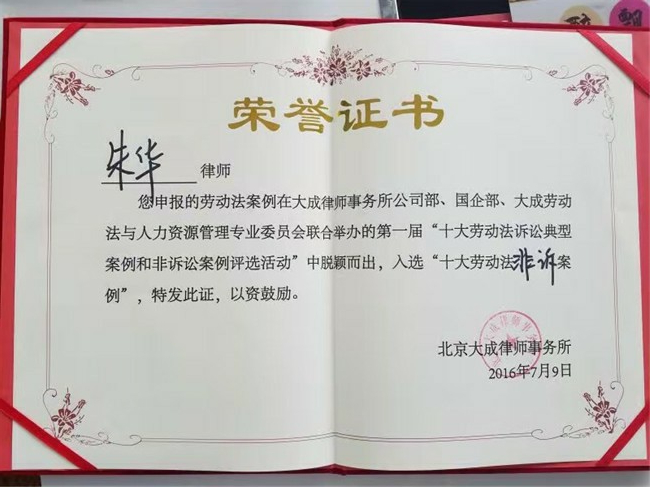 荣誉证书
朱华 律师
您申报的劳动法案例在大成律师事务所公司部、国企部、大成劳动
法与人力资源管理专业委员会联合举办的第一届“十大劳动法诉讼典型
案例和非诉讼案例评选活动”中脱颖而出，入选“十大劳动法非诉案
例”，特发此证，以资鼓励。
北京大成律师事务所
2016年7月9日